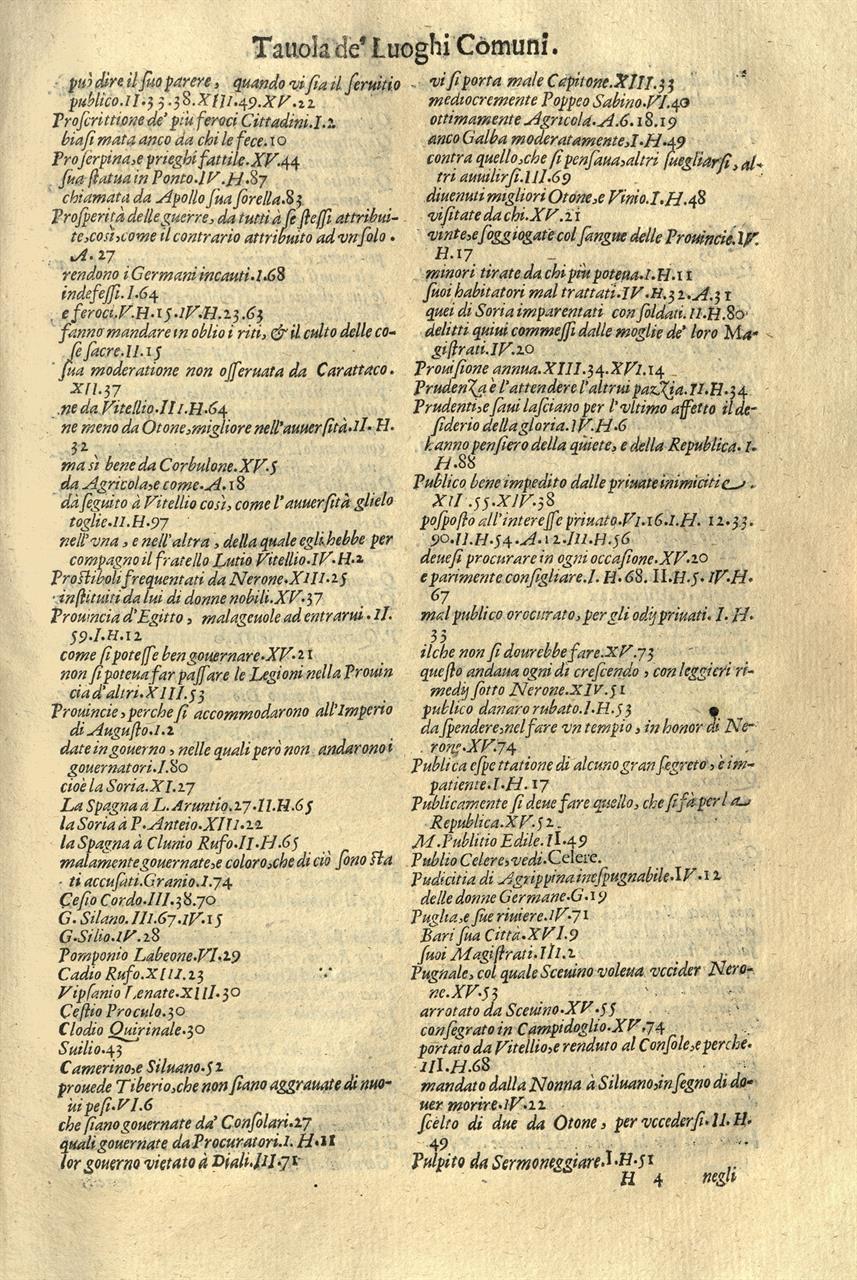 Tauola de' Luoghi Comuni.
può dire il suo parere, quando vi sia il seruitio
publico.II.33.38.XIII.49.XV.22
Proscrittione de' più feroci Cittadini.I.2
biasimata anco da chi le fece.10
Proserpina,e prieghi fattile.XV.44
sua statua in Ponto.IV.H.87
chiamata da Apollo sua sorella.83
Prosperità delle guerre, da tutti à se stessi attribui-
te,così,come il contrario attribuito ad vn solo.
A.27
rendono i Germani incauti.I.68
indefessi.I.64
e feroci.V.H.15.IV.H.23.63
fanno mandare in oblio i riti, & il culto delle co-
se sacre.II.15
sua moderatione non osseruata da Carattaco.
XII.37
ne da Vitellio.III.H.64
ne meno da Otone,migliore nell'auuersità.II.H.
32
ma sì bene da Corbulone.XV.5
da Agricola,e come.A.18
dà seguito à Vitellio così, come l'auuersità glielo
toglie.II.H.97
nell'vna, e nell'altra, della quale egli hebbe per
compagno il fratello Lutio Vitellio.IV.H.2
Prostiboli frequentati da Nerone.XIII.25
instituiti da lui di donne nobili.XV.37
Prouincia d'Egitto, malageuole ad entrarui.II.
59.I.H.12
come si potesse ben gouernare.XV.21
non si poteua far passare le Legioni nella Prouin
cia d'altri.XIII.53
Prouincie, perche si accommodarono all'Imperio
di Augusto.I.2
date in gouerno, nelle quali però non andarono i
gouernatori.I.80
cioè la Soria.XI.27
La Spagna à L. Aruntio.27.II.H.65
la Soria à P. Anteio.XIII.22
la Spagna à Clunio Rufo.II.H.65
malamente gouernate,e coloro,che di ciò sono sta
ti accusati.Granio.I.74
Cesio Cordo.III.38.70
G. Silano.III.67.IV.15
G.Silio.IV.28
Pomponio Labeone.VI.29
Cadio Rufo.XIII.23
Vipsanio Lenate.XIII.30
Cestio Proculo.30
Clodio Quirinale.30
Suilio.43
Camerino,e Siluano.52
prouede Tiberio,che non siano aggrauate di nuo-
ui pesi.VI.6
che siano gouernate da' Consolari.27
quali gouernate da Procuratori.I.H.11
lor gouerno vietato à Diali.III.71
vi si porta male Capitone.XIII.33
mediocremente Poppeo Sabino.VI.40
ottimamente Agricola.A.6.18.19
anco Galba moderatamente,I.H.49
contra quello,che si pensaua,altri suegliarsi, al-
tri auuilirsi.III.69
diuenuti migliori Otone,e Vinio.I.H.48
visitate da chi.XV.21
vinte,e soggiogate col sangue delle Prouincie.IV.
H.17
minori tirate da chi più poteua.I.H.11
suoi habitatori mal trattati.IV.H.32.A.31
quei di Soria imparentati con soldati.II.H.80
delitti quiui commessi dalle moglie de' loro Ma-
gistrati.IV.20
Prouisione annua.XIII.34.XVI.14
Prudenza è l'attendere l'altrui pazzia.II.H.34
Prudenti,e saui lasciano per l'vltimo affetto il de-
siderio della gloria.IV.H.6
hanno pensiero della quiete, e della Republica.I.
H.88
Publico bene impedito dalle priuate inimicitie.
XII.55.XIV.38
posposto all'interesse priuato.VI.16.I.H. 12.33.
90.II.H.54.A.12.III.H.56
deuesi procurare in ogni occasione.XV.20
e parimente consigliare.I.H.68.II.H.5.IV.H.
67
mal publico orocurato, per gli odij priuati. I.H.
33
ilche non si dourebbe fare.XV.73
questo andaua ogni dì crescendo, con leggieri ri-
medij sotto Nerone.XIV.51
publico danaro rubato.I.H.53
da spendere,nel fare vn tempio, in honor di Ne-
rone.XV.74
Publica espettatione di alcuno gran segreto, è im-
patiente.I.H.17
Publicamente si deue fare quello, che si fà per la
Republica.XV.52
M.Publitio Edile.II.49
Publio Celere,vedi.Celere.
Pudicitia di Agrippina inespugnabile.IV.12
delle donne Germane.G.19
Puglia,e sue riuiere.IV.71
Bari sua Città.XVI.9
suoi Magistrati.III.2
Pugnale, col quale Sceuino voleua vccider Nero-
ne.XV.53
arrotato da Sceuino.XV.55
consegrato in Campidoglio.XV.74
portato da Vitellio,e renduto al Console,e perche.
III.H.68
mandato dalla Nonna à Siluano,in segno di do-
uer morire.IV.22
scelto di due da Otone, per vccedersi.II.H.
49
Pulpito da Sermoneggiare.I.H.51
H 4 negli